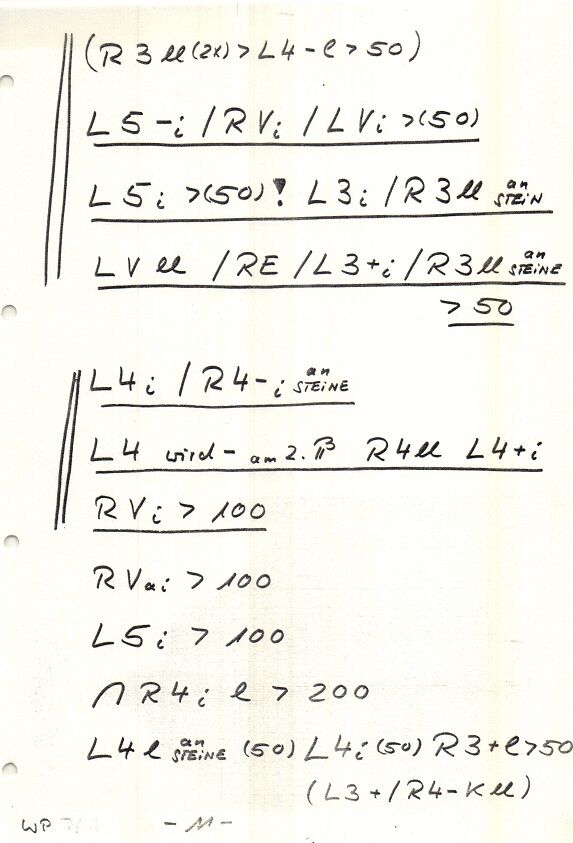 (R3ll(2x)>L4-l>50)
L5-i/RVi/LVi>(50)
L5i>(50)! L3i/R3ll an STEiN
LVll/RE/L3+i/R3ll an STEiNE
>50
L4i/R4-i an STEiNE
L4 wird- am 2. R4ll L4+i
RVi>100
RVai>100
L5i>100
∩R4il>200
L4l an STEiNE (50) L4i(50) R3+l>50
(L3+/R4-Kll)
WP -11-